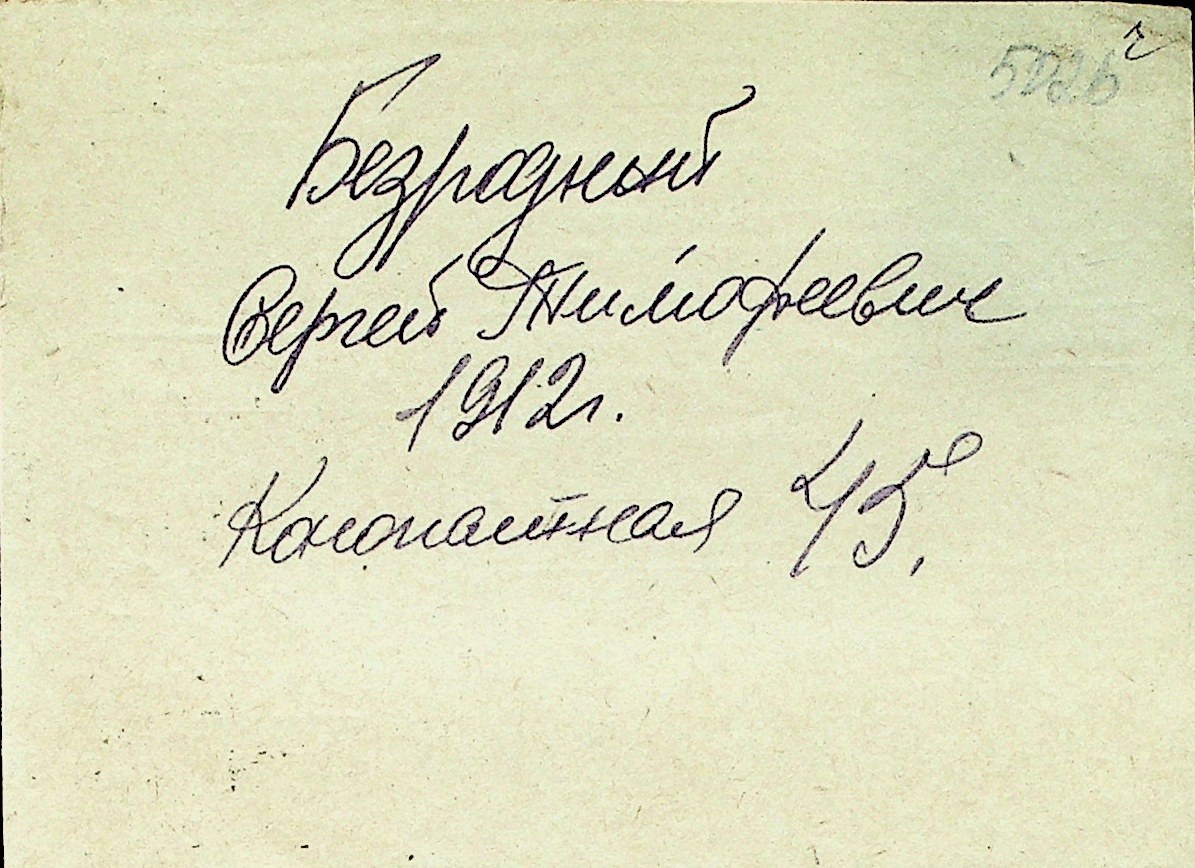 5026
Безродный
Сергей Тимофеевич
1912г.
Канатная 45.